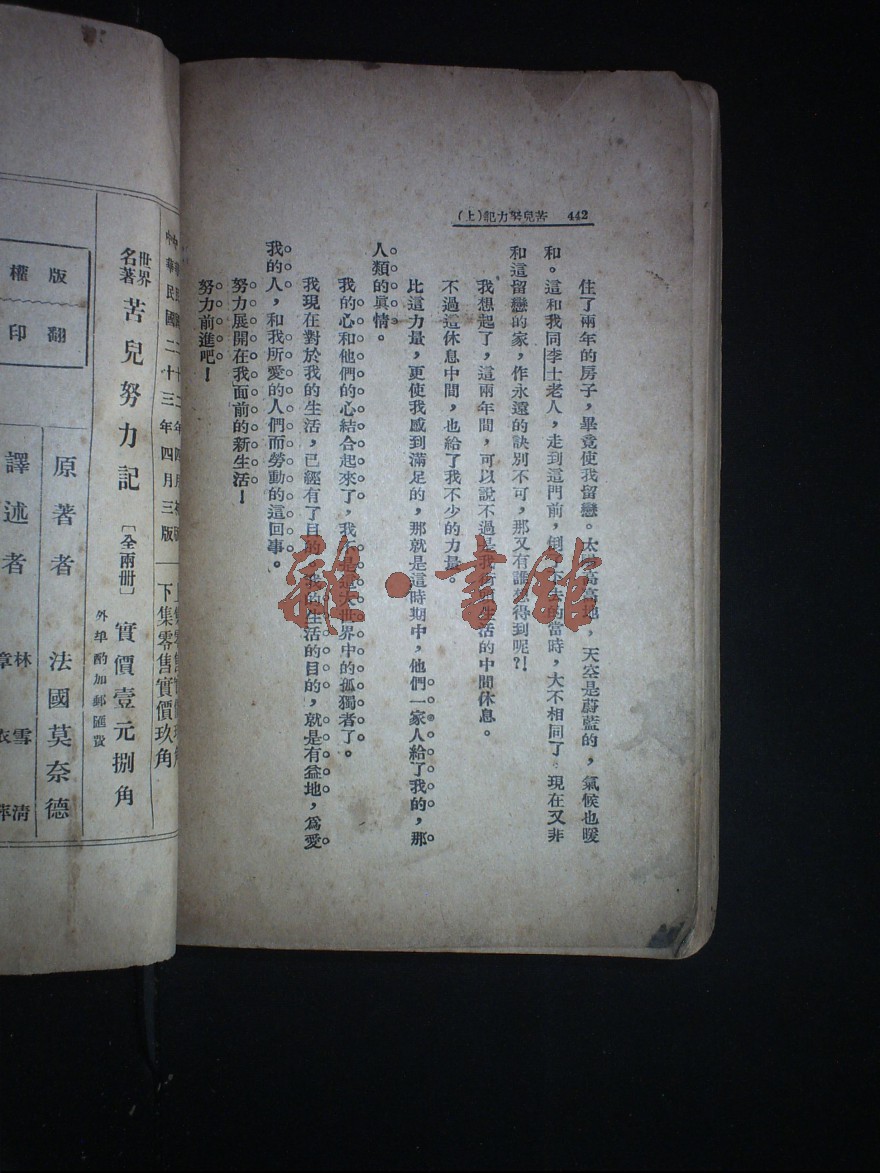 442 苦兒努力記(上)
住了兩年的房子，畢竟使我留戀。太 高高地，天空是蔚藍的，氣候也暖
和。這和我同李士老人，走到這門前，倒 去的當時，大不相同了 現在又非
和這留戀的家，作永遠的訣別不可，那又有誰想得到呢?!
我想起了，這兩年間，可以說不過是我 生活的中間休息。
不過這休息中間，也給了我不少的力量。
比這力量，更使我感到滿足的，那就是這時期中，他們一家人給了我的，那
人類的眞情。
我的心和他們的心結合起來了，我不是這大世界中的孤獨者了。
我現在對於我的生活，已經有了目的，我的生活的目的，就是有益地，爲愛
我的人，和我所愛的人們而勞動的這回事。
努力展開在我面前的新生活！
努力前進吧！
中華民國二十三年四月三版
下集零售實價玖角
世界名著 苦兒努力記 〔全兩册〕 實價壹元捌角
外埠酌加郵匯費
原著者 法國莫奈德
譯述者 林雪清
章衣萍
版權
翻印
雜·書館